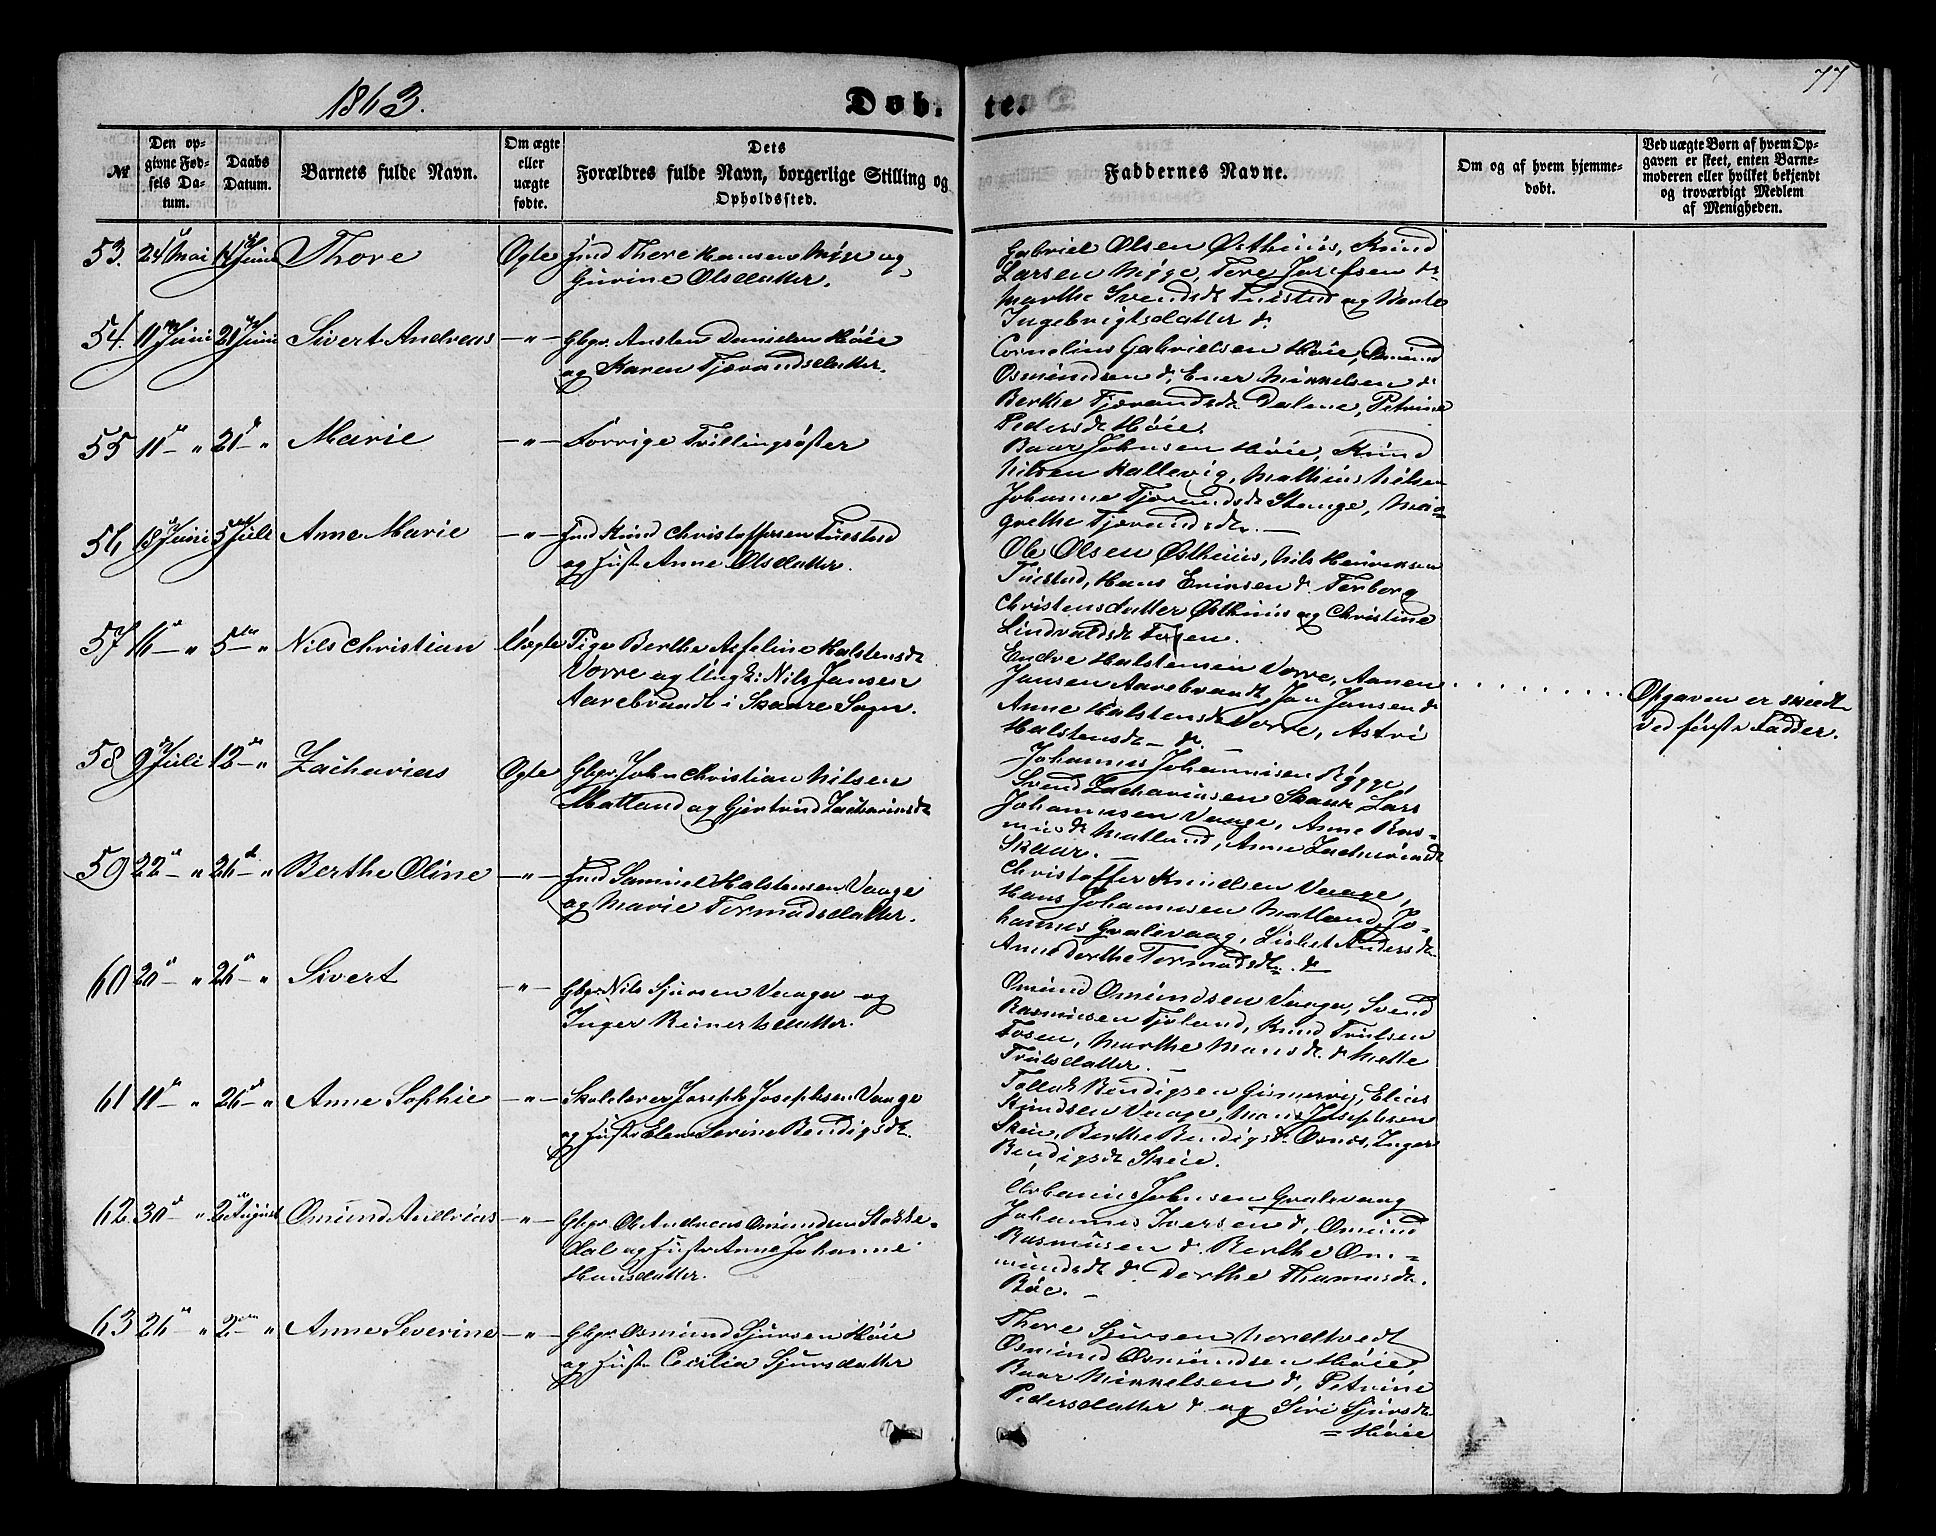 1863.
Døb.
te.
77
№
Den op-
givne Fød-
sels Da-
tum.
Daabs
Datum.
Barnets fulde Navn.
Om ægte
eller
uægte
fødte.
Dets
Forældres fulde Navn, borgerlige Stilling og
Opholdssted.
Faddernes Navne.
Om og af hvem hjemme-
døbt.
Ved uægte Børn af hvem Op-
gaven er skeet, enten Barne-
moderen eller hvilket bekjendt
og troværdigt Medlem
af Menigheden.
53. 24 Mai 14 Juni Thore Ægte Ind Thore Hansen Møge og
Gurine Olsdatter.
Gabriel Olsen Østhuus, Knud
Larsen Møge, Tore Josefsen do
Marthe Svendsdt Tuestad og Berte
Ingebrigtsdatter do
54. 11 Juni 21 Juni Sivert Andreas -"- Gbgr. Austen Danielsen Høie
og Karen Tjærandsdatter.
Cornelius Gabrielsen Høie, Osmund
Osmundsen do, Ener Mikkelsen do
Berthe Tjærandsdt Dalene, Petrine
Pedersdt Høie.
55 11 " 21 " Marie -"- Forrige Tvillingsøster
Baar Johnsen Høie, Knud
Nilsen Kallevig, Mathias Nilsen
Johanne Tjærandsdt Stange, Mar-
grethe Tjærandsdt.
56 18 Juni 5 Juli Anne Marie -"- Ind Knud Christoffersen Tuestad
og Hust. Anne Olsdatter.
Ole Olsen Østhuus, Nils Henriksen
Tuestad, Hans Eriksen do Torborg
Christensdatter Østhuus og Christine
Lindvaldsdt Fosen.
57 16 " 5 " Nils Christian Uægte Pige Berthe Asseline Halstensdt
Vorre og Ungk: Nils Jansen
Aarebrundt i Skaare Sogn.
Endre Halstensen Vorre, Aanen
Jansen Aarebrandt, Jan Jansen do
Anne Halstensdt Vorre, Astri
Halstensdt do
Opgaven er skeedt
ved første Fadder.
58 9 Juli 12 " Zacharias Ægte Gbgr. John Christian Nilsen
Matland og Gjertrud Zachariasdt
Johannes Johannesen Bygge,
Svend Zachariasen Skaar Lars
Johannesen Vaage, Anne Ras-
musdt Matland, Anne Zachariasdt
Skaar.
59 22 " 26 " Berthe Oline -"- Ind Samuel Halstensen Vaage
og Marie Tormodsdatter.
Christoffer Knudsen Vaage,
Hans Johannesen Matland, Jo-
hannes Gralevaag, Lisbet Andersdt
Anne Dorthe Tormodsdt do
60 20 " 26 " Sivert -"- Gbgr. Nils Sjursen Vaage og
Inger Reinertsdatter.
Osmund Osmundsen Vaage, Svend
Rasmusen Tjoland, Knud Trulsen
Fosen, Marthe Mansdt do Mette
Trulsdatter.
61 11 " 26 " Anne Sophie -"- Skolelærer Joseph Josephsen Vaage
og Hustr Elen Serine Bendigsdt.
Tollak Bendigsen Gismervig, Elias
Knudsen Vaage, Mons Josephsen
Skeie, Berthe Bendigsdt Osnes, Inger
Bendigsdt Skeie.
62. 30 " 2 August Osmund Andreas -"- Gbgr Ole Andreas Osmundsen Stokke-
dal og Hustr Anne Johanne
Hansdatter.
Urbanus Johnsen Gralevaag
Johannes Iversen do, Osmund
Rasmusen do Berthe Os-
mundsdt do Dorthe Thomasdt
Bøe.
63 26 " 2 " Anne Severine -"- Gbgr. Osmund Sjursen Høie
og Hustr Cecilia Sjursdatter
Thore Sjursen Nordtvedt
Osmund Osmundsen Høie
Baar Mikkelsen do, Petrine
Pedersdatter do og Siri Sjursdt
Høie